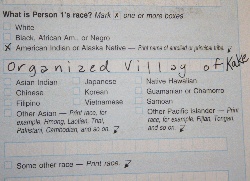 What is Person 1's race? Mark X one or more boxes.
White
Black, African Am., or Negro
X American Indian or Alaska Native — Print name of enrolled or principal tribe.
Organized Villag of Kake
Asian Indian Japanese Native Hawaiian
Chinese Korean Guamanian or Chamorro
Filipino Vietnamese Samoan
Other Asian — Print race, for Other Pacific Islander — Print
example, Hmong, Laotian, Thai, race, for example, Fijian, Tongan,
Pakistani, Cambodian, and so on. and so on.
Some other race — Print race.